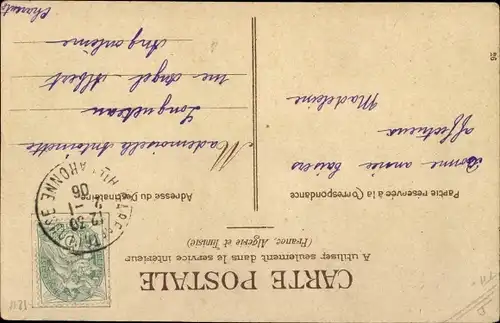 CARTE POSTALE
A utiliser seulement dans le service intérieur
(France, Algérie et Tunisie)
Partie réservée à la Correspondance
Adresse du Destinataire
Bonne année baisers
affectueux
Madeleine
Mademoiselle Antoinette
Longueteau
rue Angel-Albert
Angoulême
Charente
GARONNE
12 30
06
56